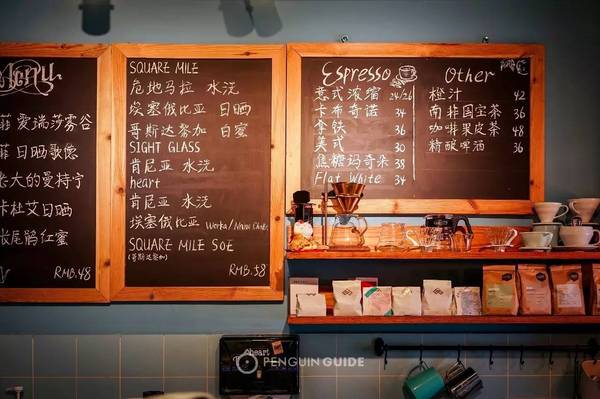 Menu
爱瑞莎雾谷
日晒歌德
老大的曼特宁
卡杜艾日晒
长尾鹃红蜜
RMB.48
SQUARE MILE
危地马拉 水洗
埃塞俄比亚 日晒
哥斯达黎加 白蜜
SIGHT GLASS
肯尼亚 水洗
heart
肯尼亚 水洗
埃塞俄比亚 Worka/
SQUARE MILE SOE
(哥斯达黎加)
RMB.58
Espresso
意式浓缩 24/26
卡布奇诺 34
拿铁 36
美式 30
焦糖玛奇朵 38
Flat White 34
Other
橙汁 42
南非国宝茶 36
咖啡果皮茶 48
精酿啤酒 36
heart
PENGUIN GUIDE